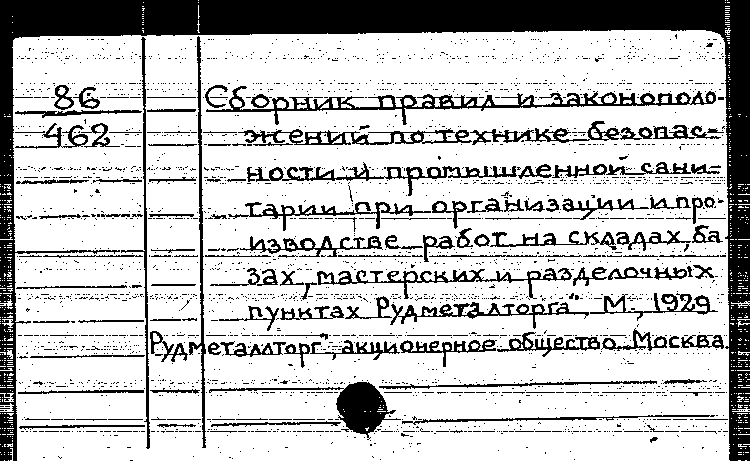 86
462
Сборник правил и законополо-
жений по технике безопас=
ности и промышленной сани=
тарии при организации и про-
изводстве работ на складах, ба-
зах, мастерских и разделочных
пунктах Рудметалторга", М., 1929
Рудметаллторг", акционерное общество. Москва.